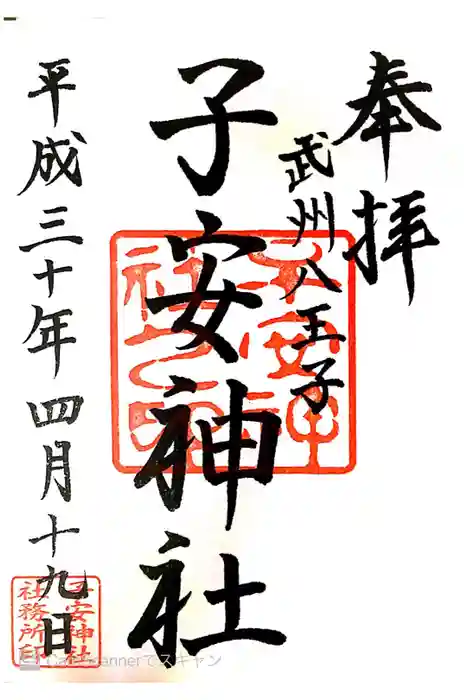 奉拝
武州八王子
子安神社
平成三十年四月十九日
子安神社
社務所印
CamScannerでスキャン